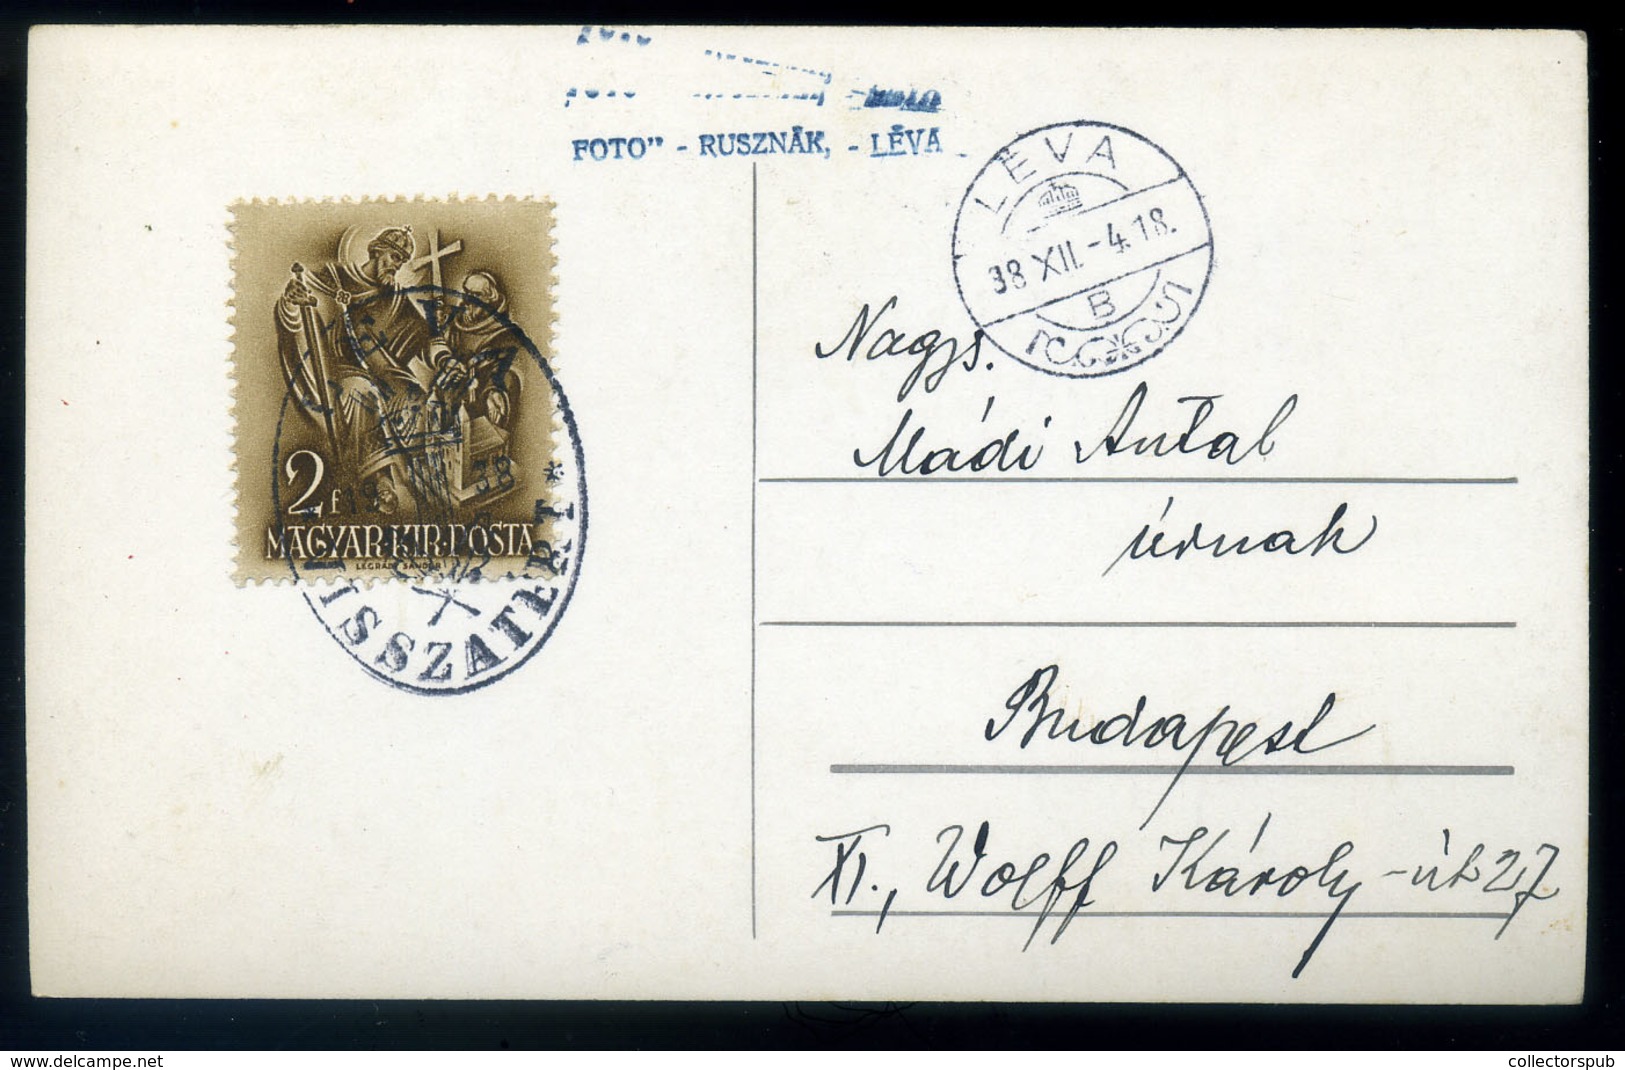 FOTO" - RUSZNÁK, - LÉVA
LÉVA
38 XII.-4.18.
B
2f
MAGYAR·KIR·POSTA
LEGRÁDY SÁNDOR
LÉVA
19 38
VISSZATÉRT *
Nagys.
Mádi Antal
úrnak
Budapest
XI., Wolff Károly-út 27
delcampe.net
collectorspub